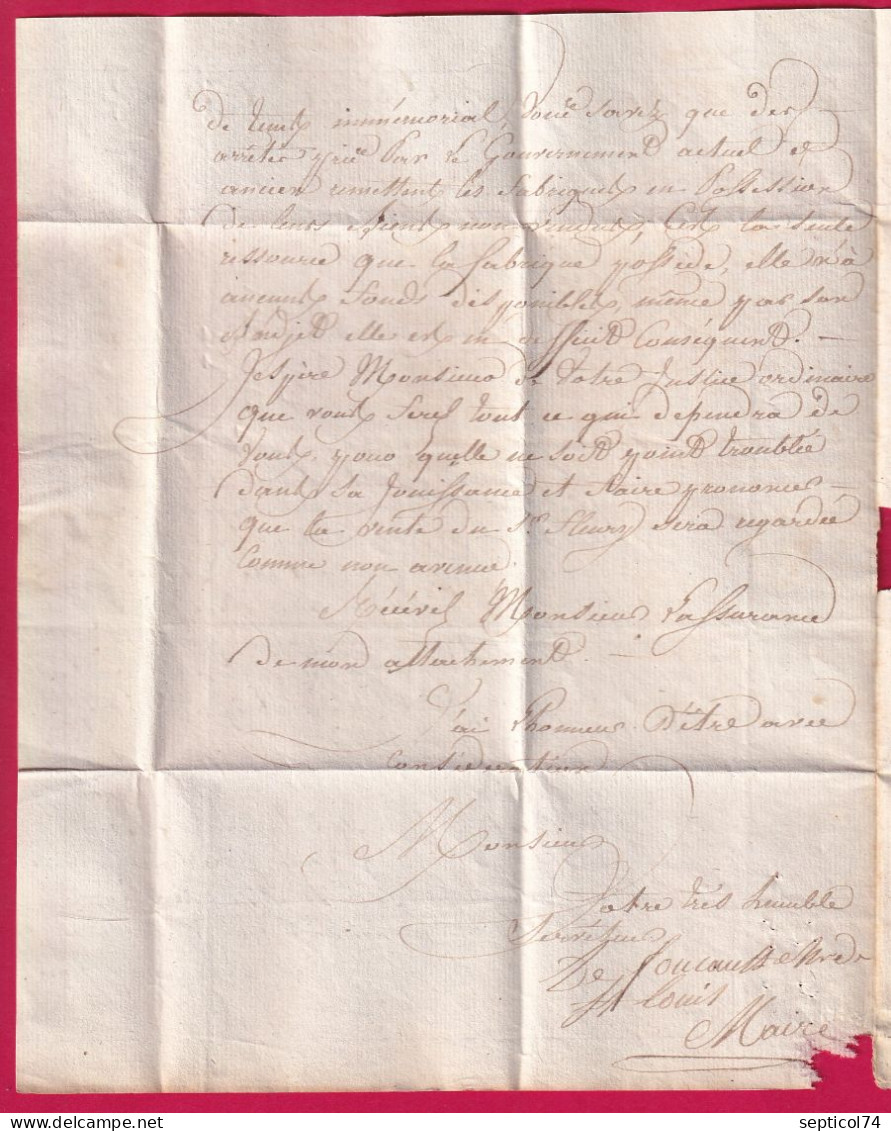 de tems immémorial, vous savez que des
arrêtés pris Par le Gouvernement actuel et
ancien remettent les fabriques en Possession
de leurs Biens non vendus, C'est la seule
ressource que la fabrique possede, elle n'a
aucuns fonds disponibles, même par son
Budjet elle est en deffficit Conséquent. —
Jespère Monsieur de Votre Justice ordinaire
que vous ferez tout ce qui dependra de
vous pour quelle ne soit point troublée
dans sa Jouissance et faire prononcer —
que la vente du Sr. fleury sera regardée
Comme non avenue.
Récévez Monsieur L'assurance
de mon attachement.
J'ai Lhonneur D'être avec
Considération
Monsieur
Votre très humble
Serviteur
De foucault Chr de
St Louis
Maire
septicol74